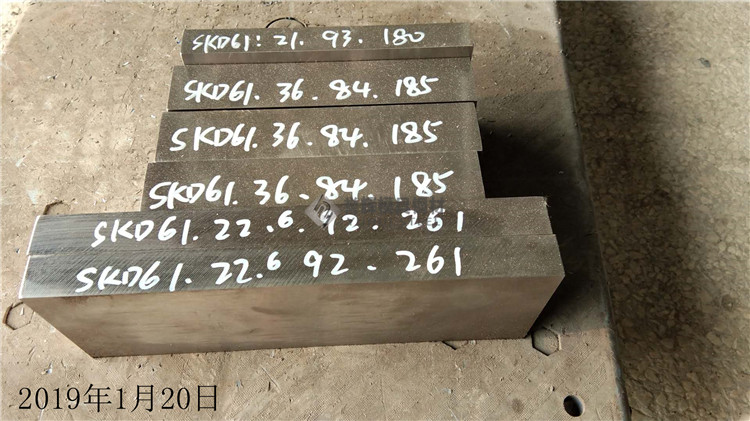 SKD61: 21. 93. 180
SKD61. 36. 84. 185
SKD61. 36. 84. 185
SKD61. 36. 84. 185
SKD61. 22.6. 92. 261
SKD61. 22.6 92. 261
2019年1月20日